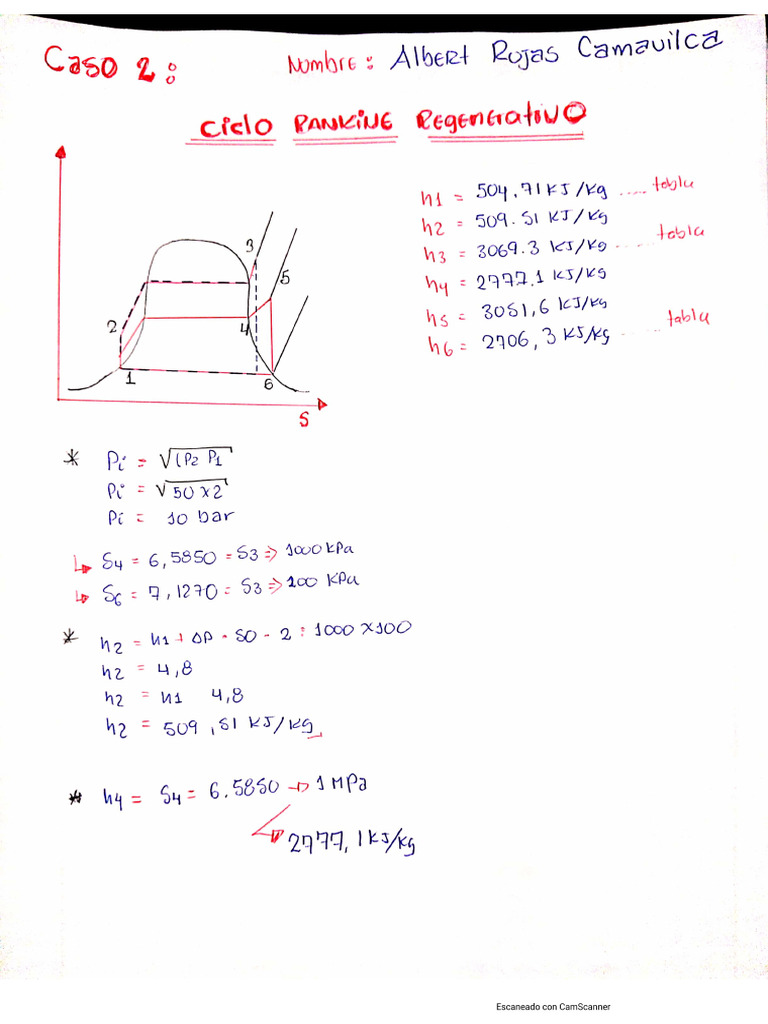 Caso 2:
Nombre: Albert Rojas Camavilca
Ciclo Rankine Regenerativo
h1 = 504,71 KJ/Kg ..... tabla
h2 = 509.51 KJ/Kg
h3 = 3069.3 KJ/Kg ..... tabla
h4 = 2777.1 KJ/Kg
h5 = 3051,6 KJ/Kg
h6 = 2706,3 KJ/Kg ..... tabla
3
5
2
4
1
6
S
* Pi = √(P2 P1
Pi = √50 x 2
Pi = 10 bar
↳ S4 = 6,5850 = S3 => 1000 KPa
↳ S6 = 7,1270 = S3 => 200 KPa
* h2 = h1 + ΔP · 50 - 2 : 1000 x 100
h2 = 4,8
h2 = h1 4,8
h2 = 509,51 KJ/Kg
* h4 = S4 = 6.5850 → 1 MPa
2777,1 KJ/Kg
Escaneado con CamScanner